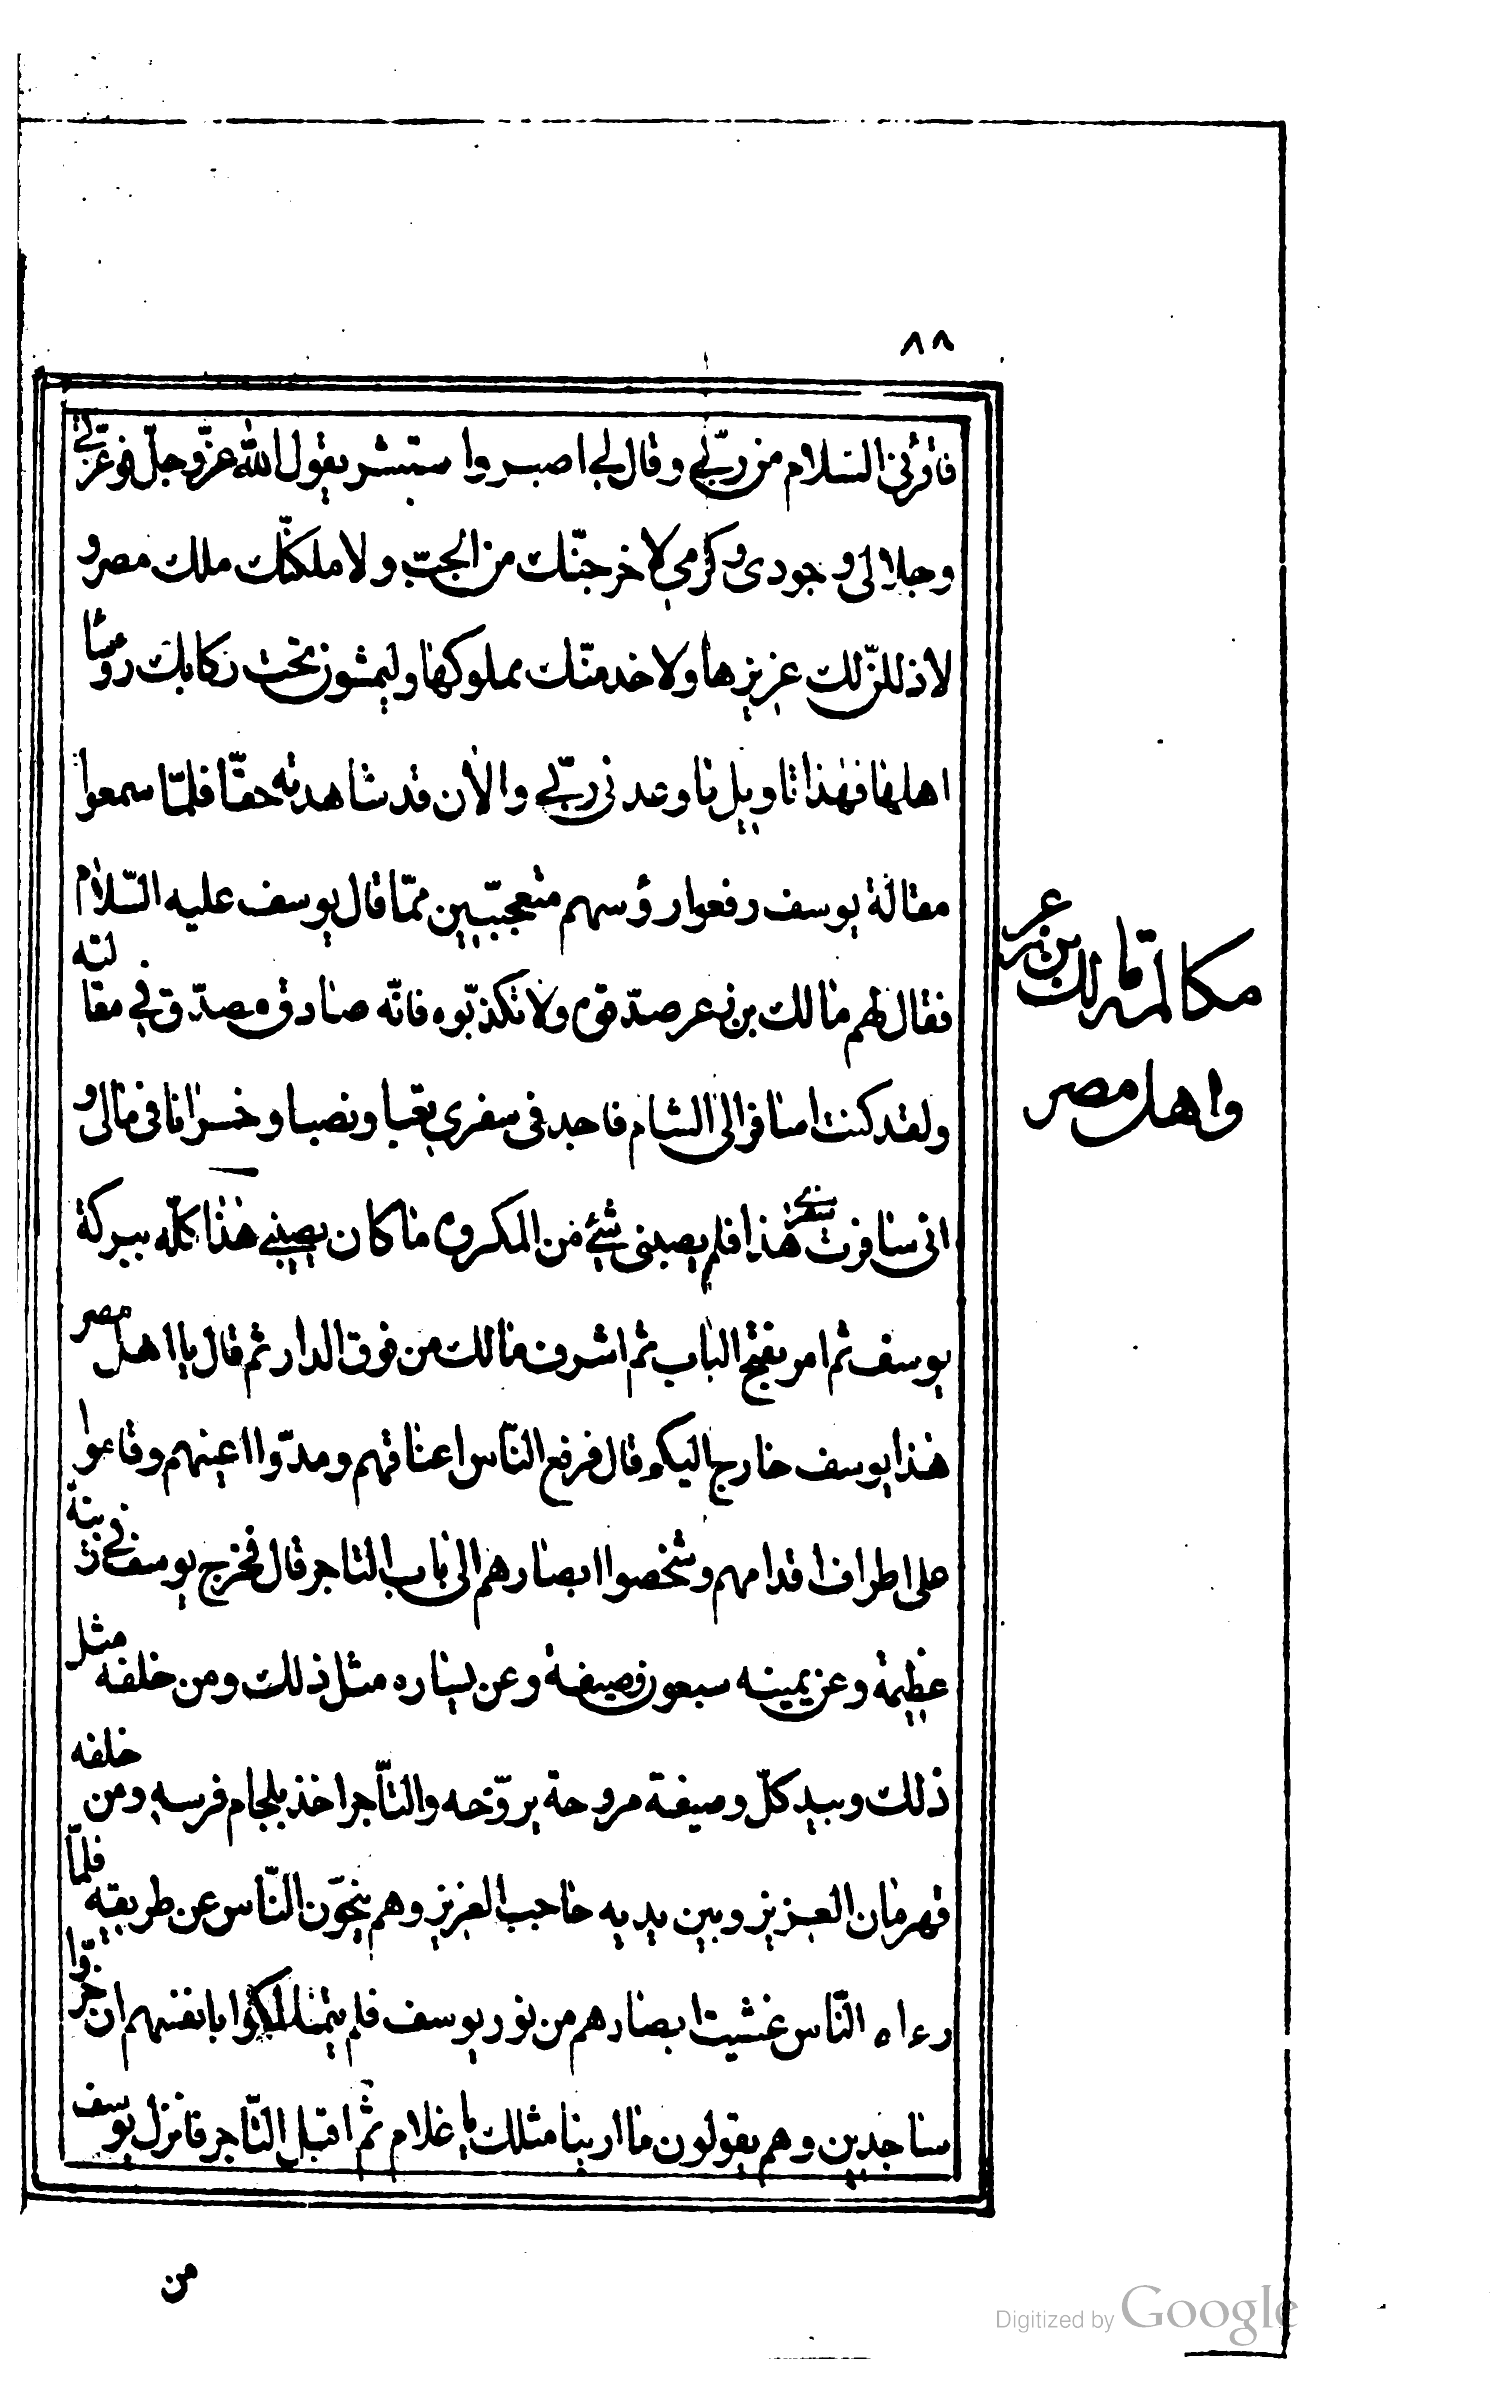 ٨٨
فاقرئنى السّلام من ربّي وقال لي اصبر واستبشر يقول الله عزّوجلّ فوعزّتي
وجلالى وجودى وكرمي لاخرجنّك من الجبّ ولاملكنّك ملك مصر و
لاذللنّ لك عزيزها ولاخدمنّك مملوكها وليمشون تحت ركابك رؤسا
اهلها فهذا تاويل ما وعدنى ربّي والان قد شاهدته حقّا فلمّا سمعوا
مقالة يوسف رفعوا رؤسهم متعجّبين ممّا قال يوسف عليه السّلام
فقال لهم مالك بن زعر صدّقوه ولا تكذبّوه فانّه صادق مصدّق في مقالته
ولقد كنت اسافر الى الشام فاجد فى سفري تعبا ونصبا وخسرانا فى مالى و
انى سافرت سفري هذا فلم يصبنى شيئ من المكروه ما كان يصيبني هذا كلّه ببركة
يوسف ثم امر بفتح الباب ثم اشرف مالك من فوق الدار ثم قال يا اهل مصر
هذا يوسف خارج اليكم قال فرفع النّاس اعناقهم ومدّوا اعينهم وقاموا
على اطراف اقدامهم وشخصوا ابصارهم الى باب التاجر قال فخرج يوسف في زينة
عظيمة وعن يمينه سبعون وصيفة وعن يساره مثل ذلك ومن خلفه مثل
ذلك وبيد كلّ وصيفة مروحة يروّحه والتّاجر اخذ بلجام فرسه ومن خلفه
قهرمان العزيز وبين يديه حاجب العزيز وهم ينحّون النّاس عن طريقه فلمّا
رءاه النّاس غشيت ابصارهم من نور يوسف فلم يتمالكوا بانفسهم ان خرّوا
ساجدين وهم يقولون ما اربنا مثلك يا غلام ثم اقبل التّاجر فانزل يوسف
مكالمة مالك بن زعر
واهل مصر
من
Digitized by Google